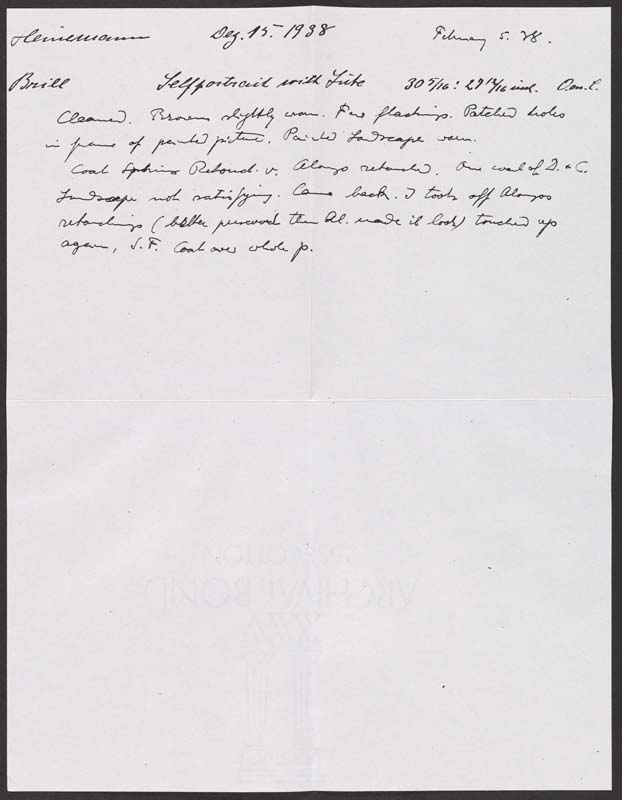 Heinemann Dez. 15. 1938 February 5. 38.
Brill Selfportrait with Lute 30 5/16 : 29 in. O. on C.
Cleaned. Browns slightly worn. Few flashings. Patched holes
in frame of painted picture. Painted Landscape worn.
Coat Sphinx Retouch. v. Alonzo retouched. One coat of D. & C.
Landscape not satisfying. Came back. I took off Alonzos
retouchings (better preserved then Al. made it look) touched up
again, S.F. Coat over whole p.
ARCHIVE BOND